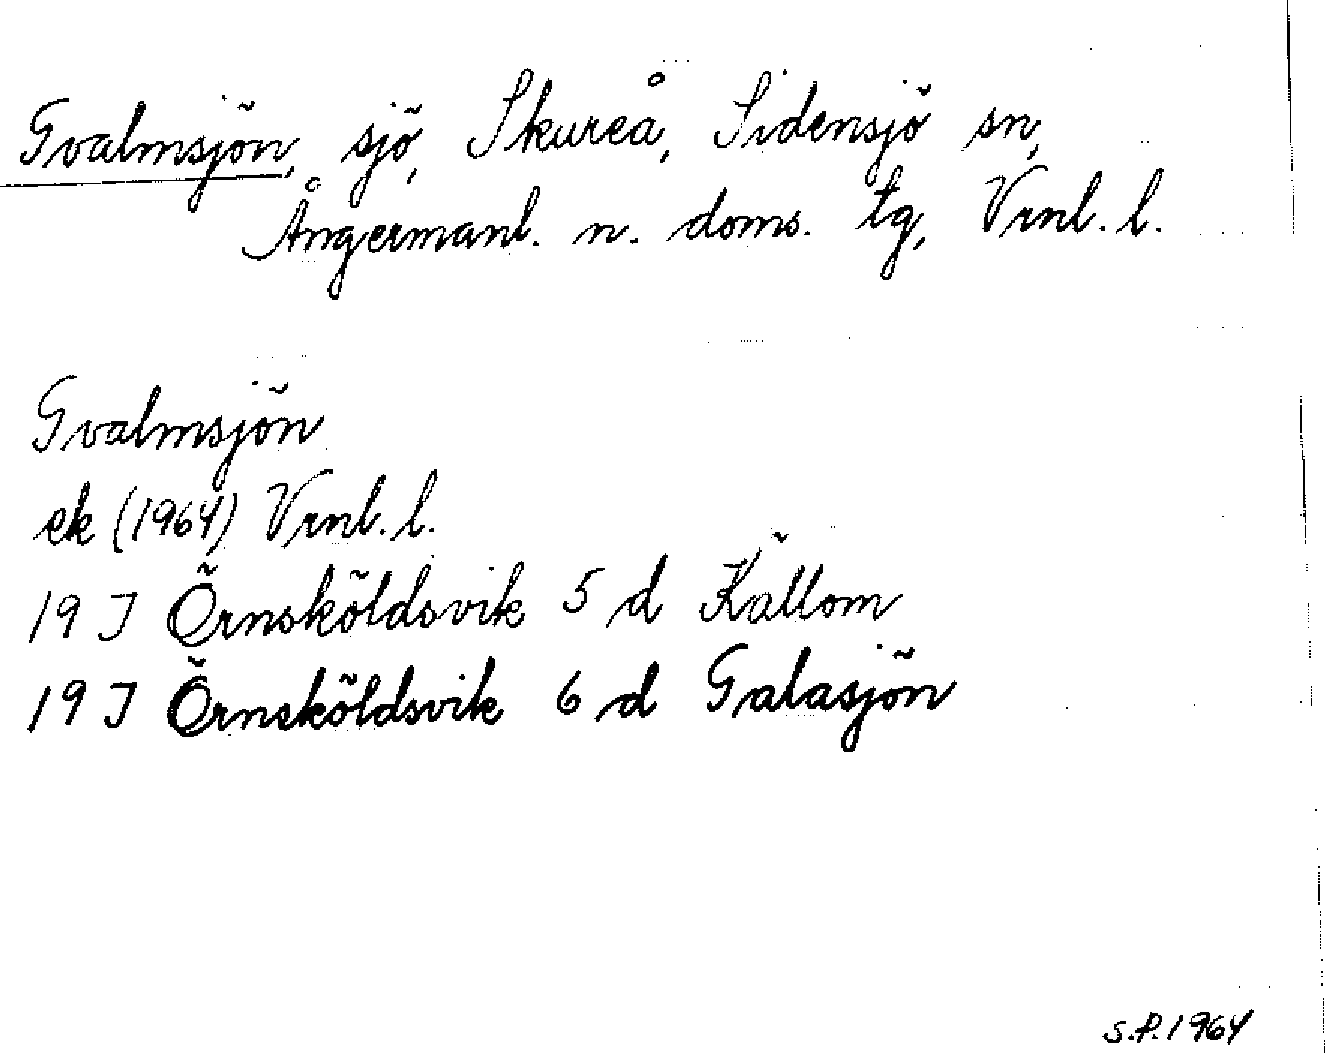 Gvalmsjön, sjö, Skureå, Sidensjö sn,
Ångermanl. n. doms. tg, Vrnl. l.
Gvalmsjön
ek (1964) Vrnl. l.
19 J Örnsköldsvik 5 d Källom
19 J Örnsköldsvik 6 d Galasjön
S.P. 1964